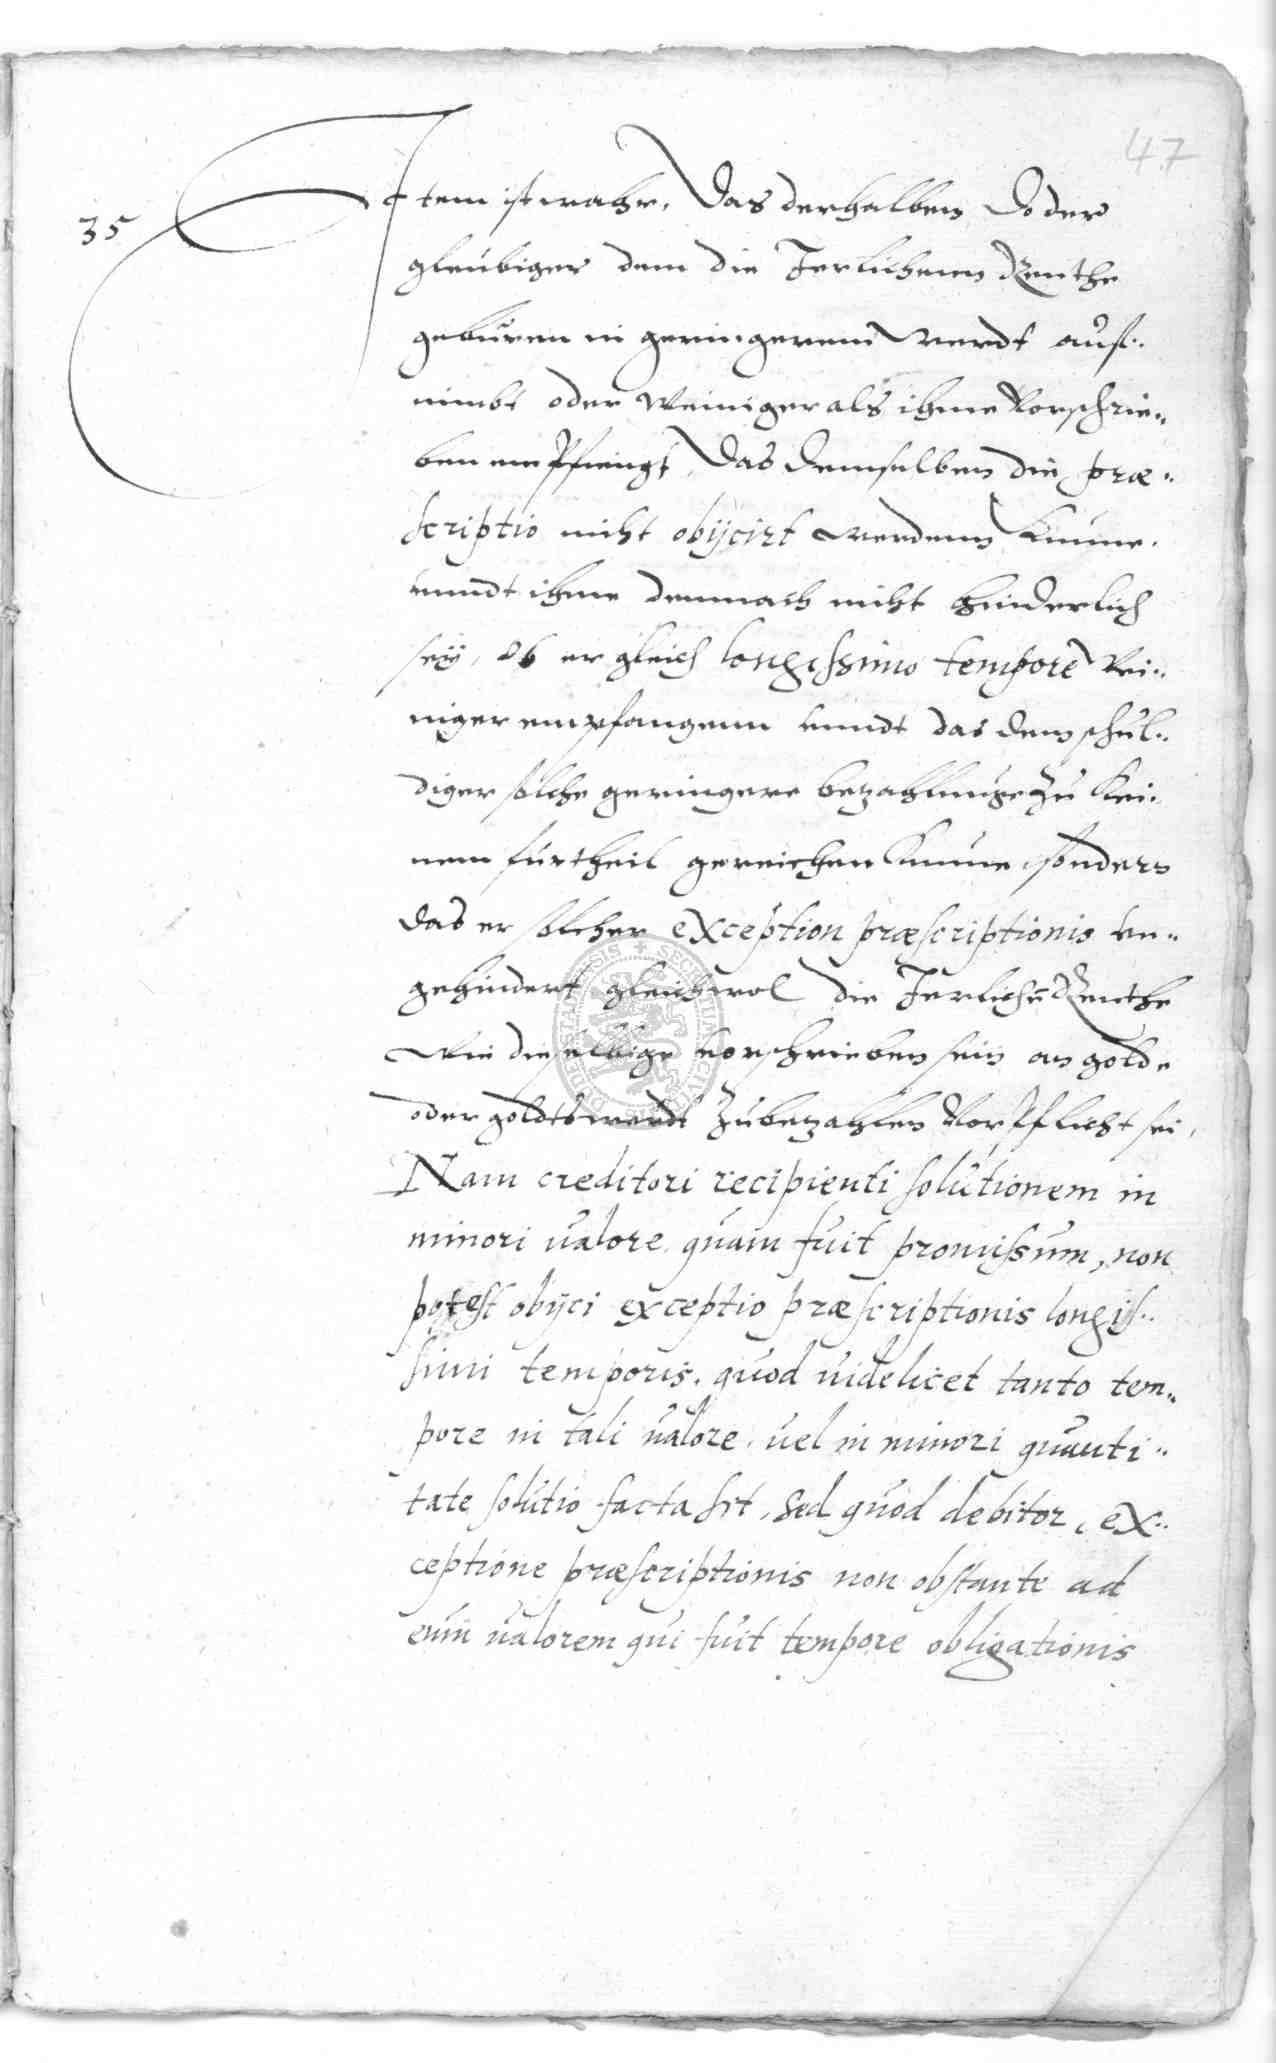 47
35
Item ist wahr, Das derhalben Do der
gleubiger dem die Jerlichenn Renthe
geburen in geringerem werdt auf¨
nimbt oder weiniger als ihme Vorschrie¨
ben empfiengt, Das demselben die præ¨
scriptio nicht obijcirt werdenn kunne,
unndt ihme demnach nicht hinderlich
seÿ, Ob er gleich longissimo tempore Wei¨
niger empfangenn unndt das dem schul¨
diger solche geringere bezahlunge zu kei¨
nem furtheil gereichen kunne, sondern
das er solcher exception præscriptionis un¨
gehindert gleichwol die Jerliche Renthe
wie dieselbige vorschrieben sein an golde
oder goldtswerdt zubezahlen Vorpflicht sei,
Nam creditori recipienti solutionem in
minori valore quam fuit promissum, non
potest obijci exceptio præscriptionis longis¨
simi temporis, quod videlicet tanto tem¨
pore in tali valore, vel in minori quanti¨
tate solutio facta sit, Sed quod debitor, ex¨
ceptione præscriptionis non obstante ad
eum valorem qui fuit tempore obligationis